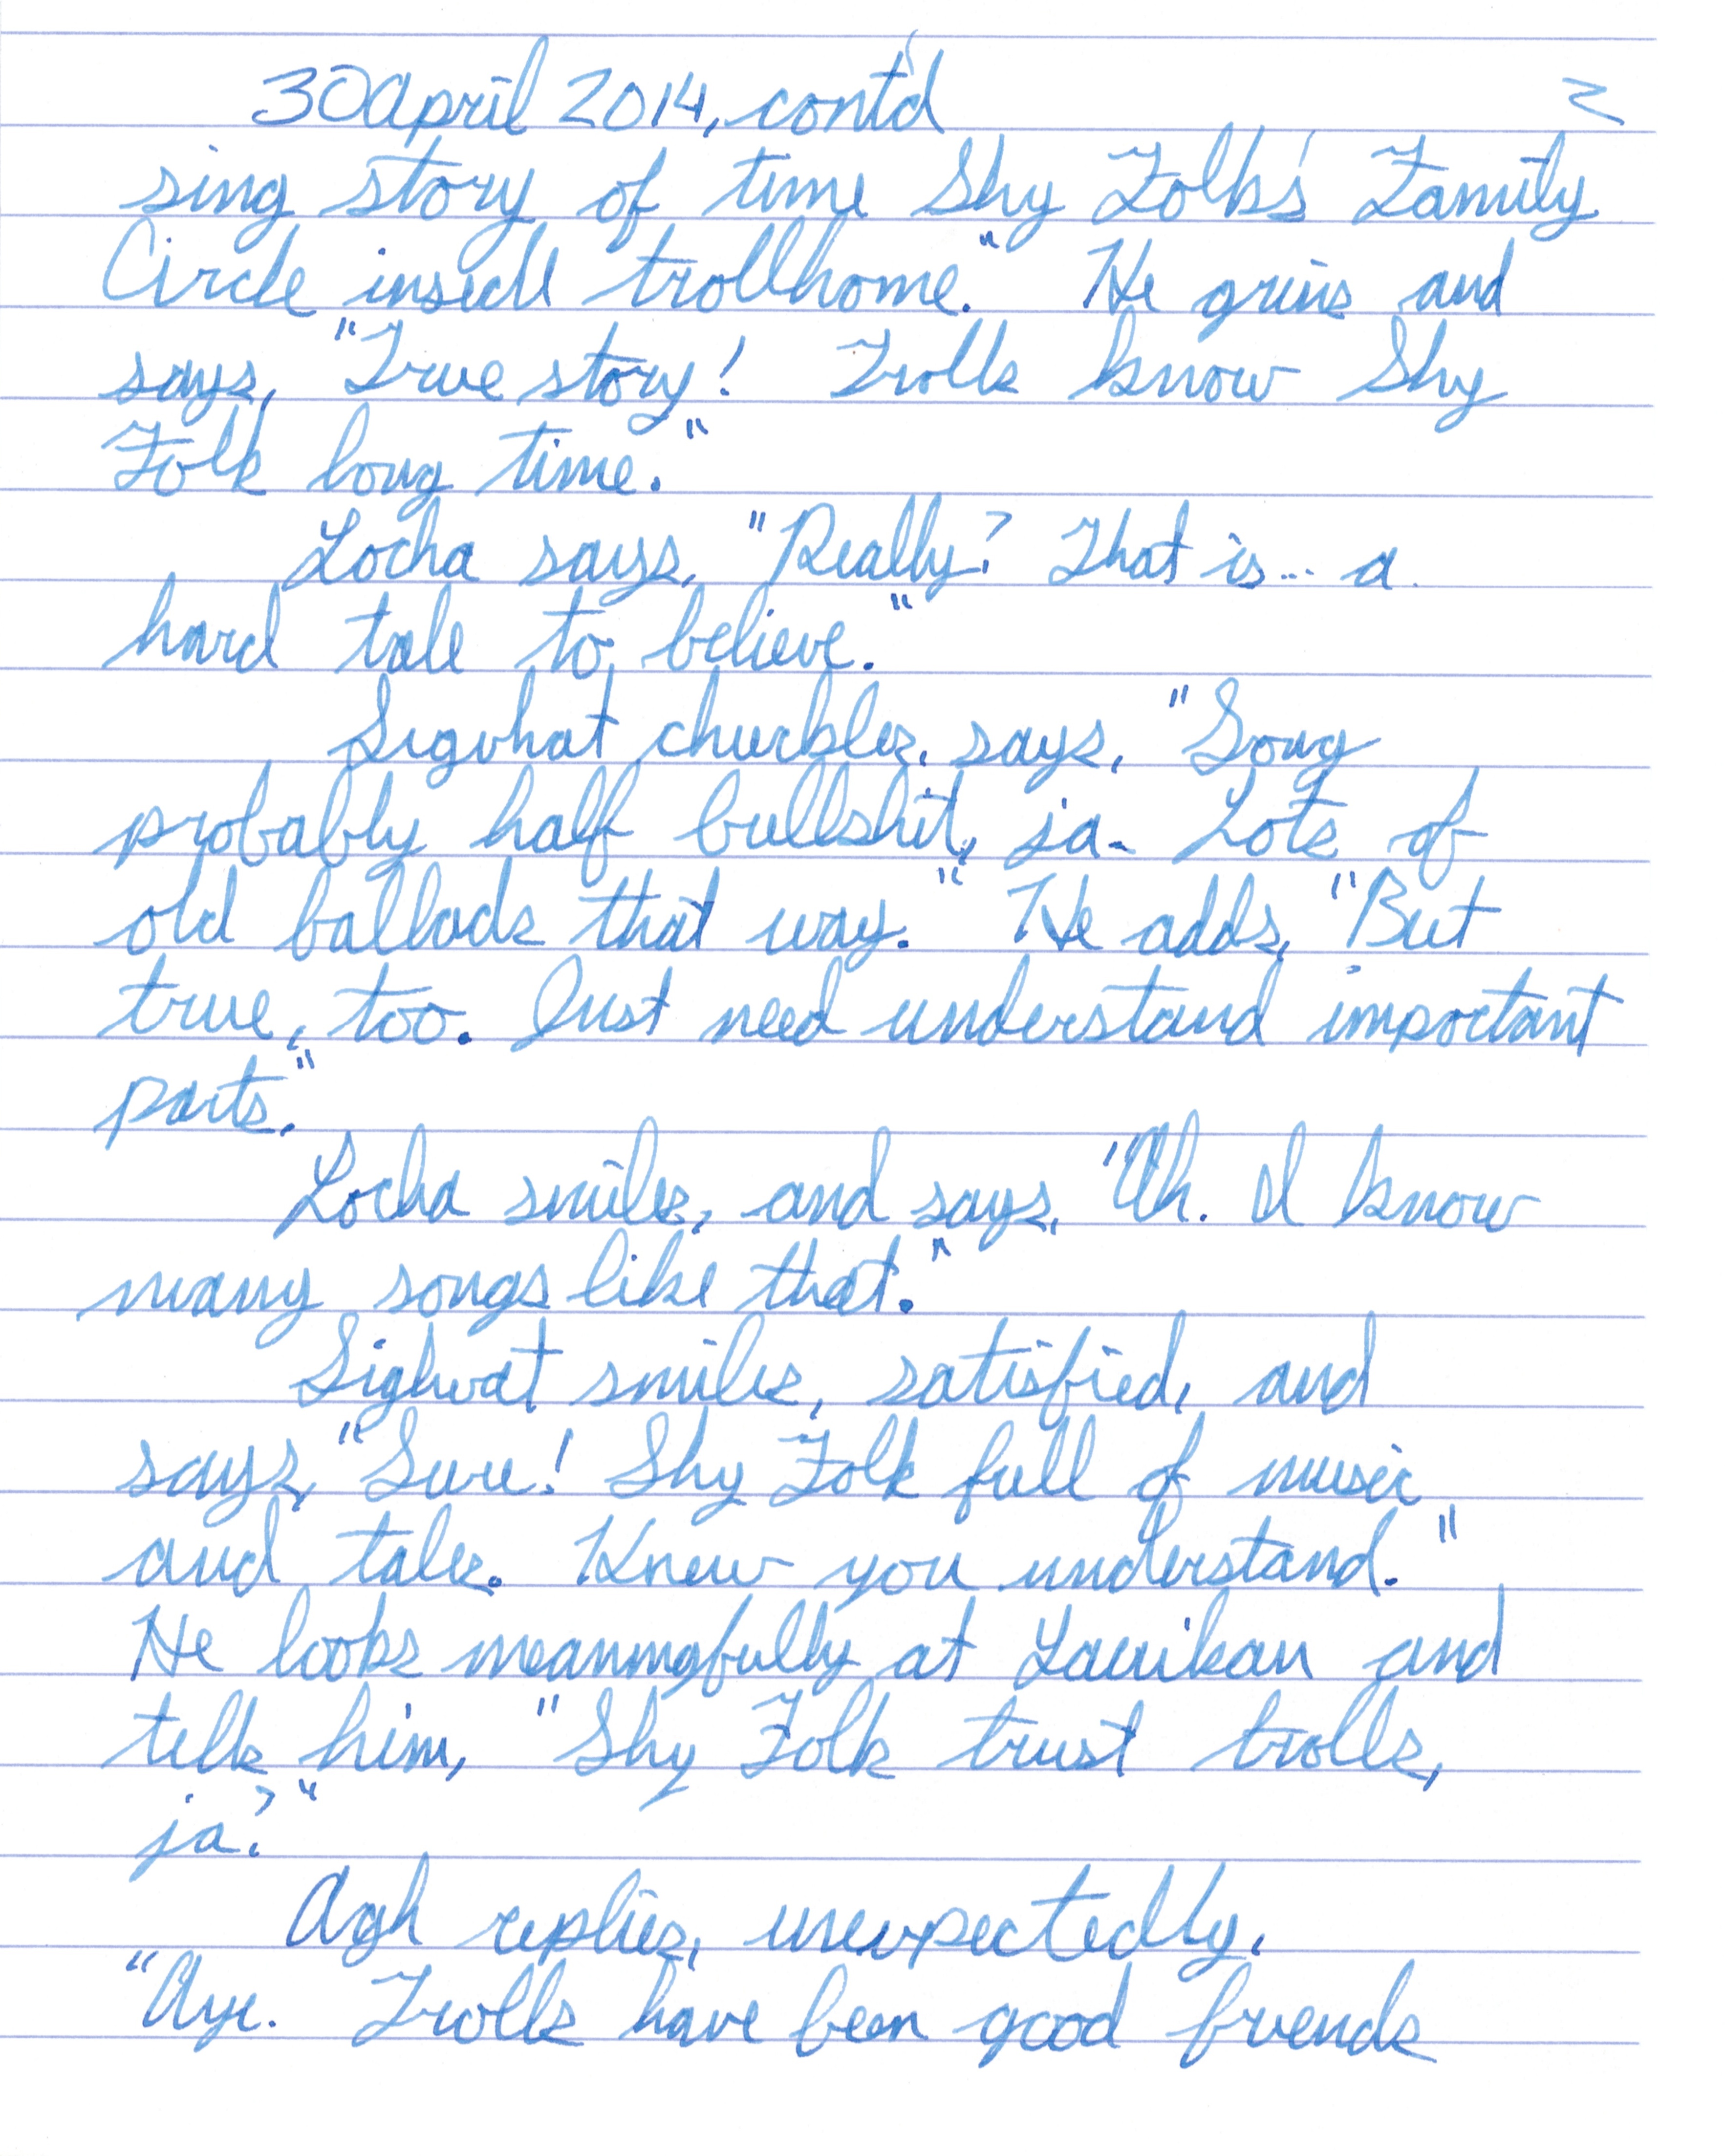 30 April 2014, cont'd 2
sing story of time Shy Folks' Family
Circle inside trollhome." He grins and
says, "True story! Trolls know Shy
Folk long time."
Locha says, "Really? That is... a
hard tale to believe."
Sigvhat chuckles, says, "Song
probably half bullshit, ja. Lots of
old ballads that way." He adds, "But
true, too. Just need understand important
parts."
Locha smiles, and says, "Ah. I know
many songs like that."
Sighvat smiles, satisfied, and
says, "Sure! Shy Folk full of music
and tales. Knew you understand."
He looks meaningfully at Lauikan and
tells him, "Shy Folk trust trolls,
ja?"
Agh replies, unexpectedly,
"Aye. Trolls have been good friends